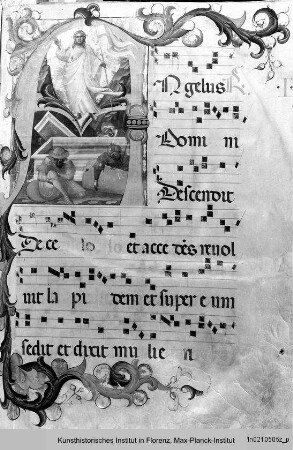 Angelus
Domi ni
Descendit
De ce lo et acce dēs reuol
uit la pi dem et super e um
sedit et dixit mu lie ri
Kunsthistorisches Institut in Florenz, Max-Planck-Institut
1n0210506z_p